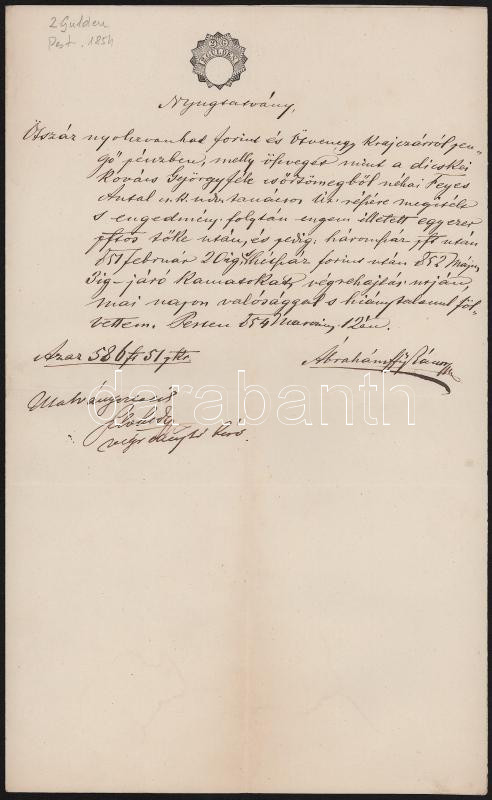 2 Gulden
Pest. 1854
2 G
GULDEN
Nyugtatvány,
Ötszáz nyolczvanhat forint és ötvenegy krajczárról pen-
gő pénzben, melly összeget mint a dicskei
Kovács Györgyféle csőrtömegből néhai Feyes
Antal tanácsos úr részére megitélt
s engedmény folytán engem illetett egyezer
pftos tőke után, és pedig: háromszáz pft után
851 február 20ig, hétszáz forint után 852 Május
3ig járó kamatokat végrehajtás utján,
mai napon valósággal s hiánytalanul föl-
vettem. Pesten 854 martius 12én.
Azaz 586 ft 51 xr.
Ábrahámffy János
darabanth